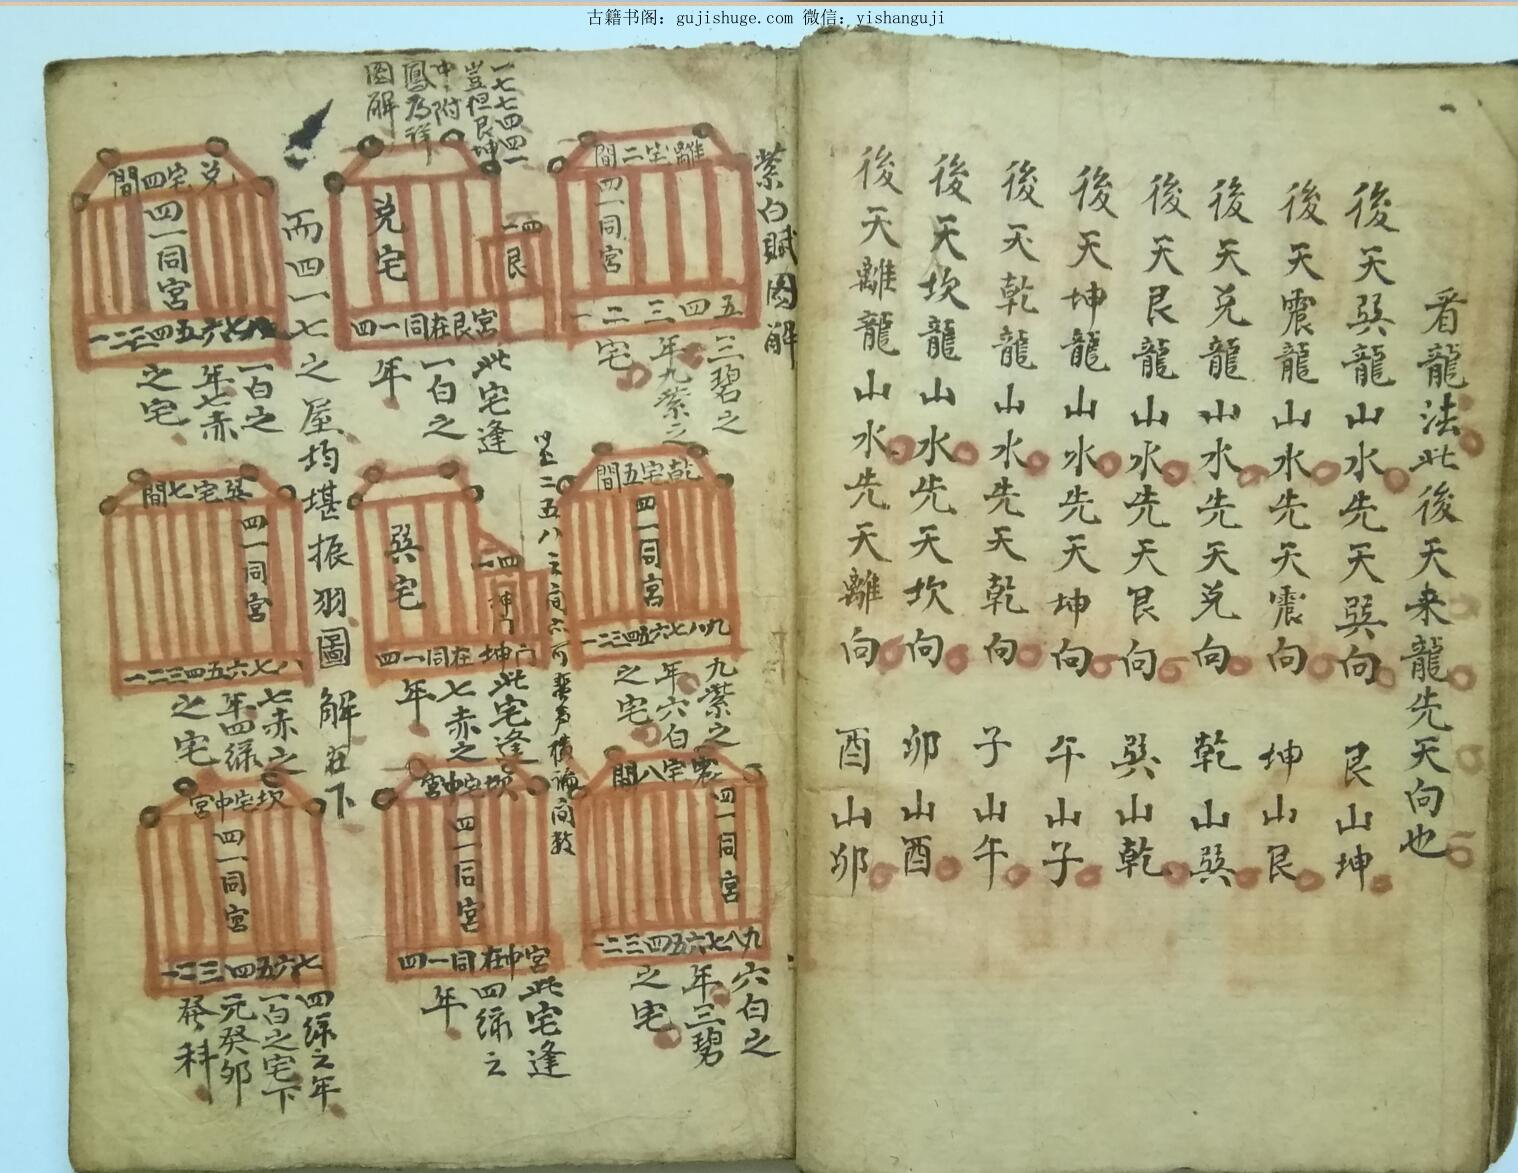 古籍书阁：gujishuge.com 微信：yishanguji
看龍法此後天来龍先天向也
後天巽龍山水先天巽向 艮山坤
後天震龍山水先天震向 坤山艮
後天兑龍山水先天兑向 乾山巽
後天艮龍山水先天艮向 巽山乾
後天坤龍山水先天坤向 午山子
後天乾龍山水先天乾向 子山午
後天坎龍山水先天坎向 卯山酉
後天離龍山水先天離向 酉山卯
紫白賦圖解
離宅二間
四一同宮
一二三四五
三碧之
年九紫之
宅
乾宅五間
四一同宮
一二三四五六七八九
九紫之
年六白
之宅
震宅八間
四一同宮
一二三四五六七八九
六白之
年三碧
之宅
一七七四四一
豈但艮坤
中附
鳳為祥
图解
兑宅
四一
艮
四一同在艮宮
此宅逢
一白之
年
巽宅
四一
坤门
四一同在坤门
此宅逢
七赤之
年
坎宅中宮
四一同宮
四一同在中宮
此宅逢
四绿之
年
而四一七之屋均堪振羽圖解在下
兑宅四間
四一同宮
一二三四五六七八
一白之
年七赤
之宅
巽宅七間
四一同宮
一二三四五六七八
七赤之
年四绿
之宅
坎宅中宮
四一同宮
一二三四五六七
四绿之年
一百之宅下
元癸卯
發科